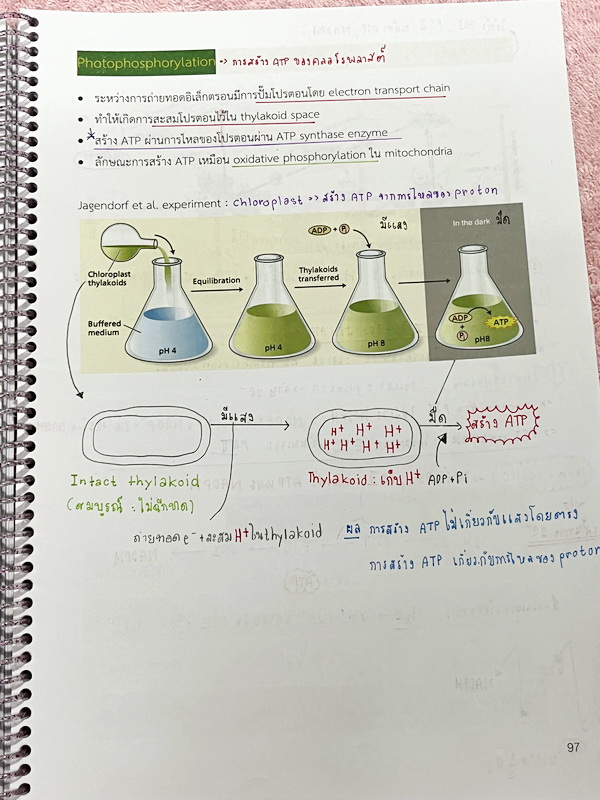 Photophosphorylation -> การสร้าง ATP ของคลอโรพลาสต์
• ระหว่างการถ่ายทอดอิเล็กตรอนมีการปั๊มโปรตอนโดย electron transport chain
• ทำให้เกิดการสะสมโปรตอนไว้ใน thylakoid space
• *สร้าง ATP ผ่านการไหลของโปรตอนผ่าน ATP synthase enzyme
• ลักษณะการสร้าง ATP เหมือน oxidative phosphorylation ใน mitochondria
Jagendorf et al. experiment : chloroplast => สร้าง ATP จากการไหลของ proton
ADP + Pi มีแสง
In the dark มืด
Chloroplast
thylakoids
Equilibration
Thylakoids
transferred
Buffered
medium
ADP
+
Pi
ATP
pH 4
pH 4
pH 8
pH8
มีแสง
มืด
สร้าง ATP
H+ H+ H+
H+ H+ H+ H+
Intact thylakoid
Thylakoid : เก็บ H+
ADP+Pi
(สมบูรณ์ : ไม่ฉีกขาด)
ถ่ายทอด e- + สะสม H+ ใน thylakoid
ผล การสร้าง ATP ไม่เกี่ยวกับแสงโดยตรง
การสร้าง ATP เกี่ยวกับการไหลของ proton
97